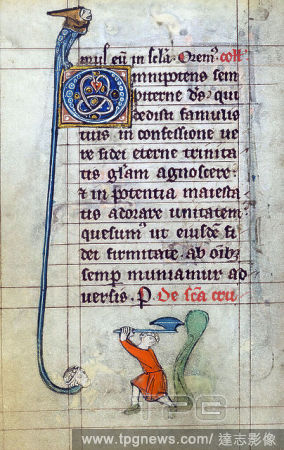 mus eu in scla. Oremꝰ. coll
Omnipotens sem
piterne ds qui
dedisti famulis
tuis in confessione ue
re fidei eterne trinita
tis glam agnoscere.
et in potentia maiesta
tis adorare unitatem.
quesumꝰ ut eiusdem fi
dei firmitate. ab oibꝫ
semp muniamur ad
uersis. P. De sca cru
TPG
www.tpgnews.com/ 達志影像